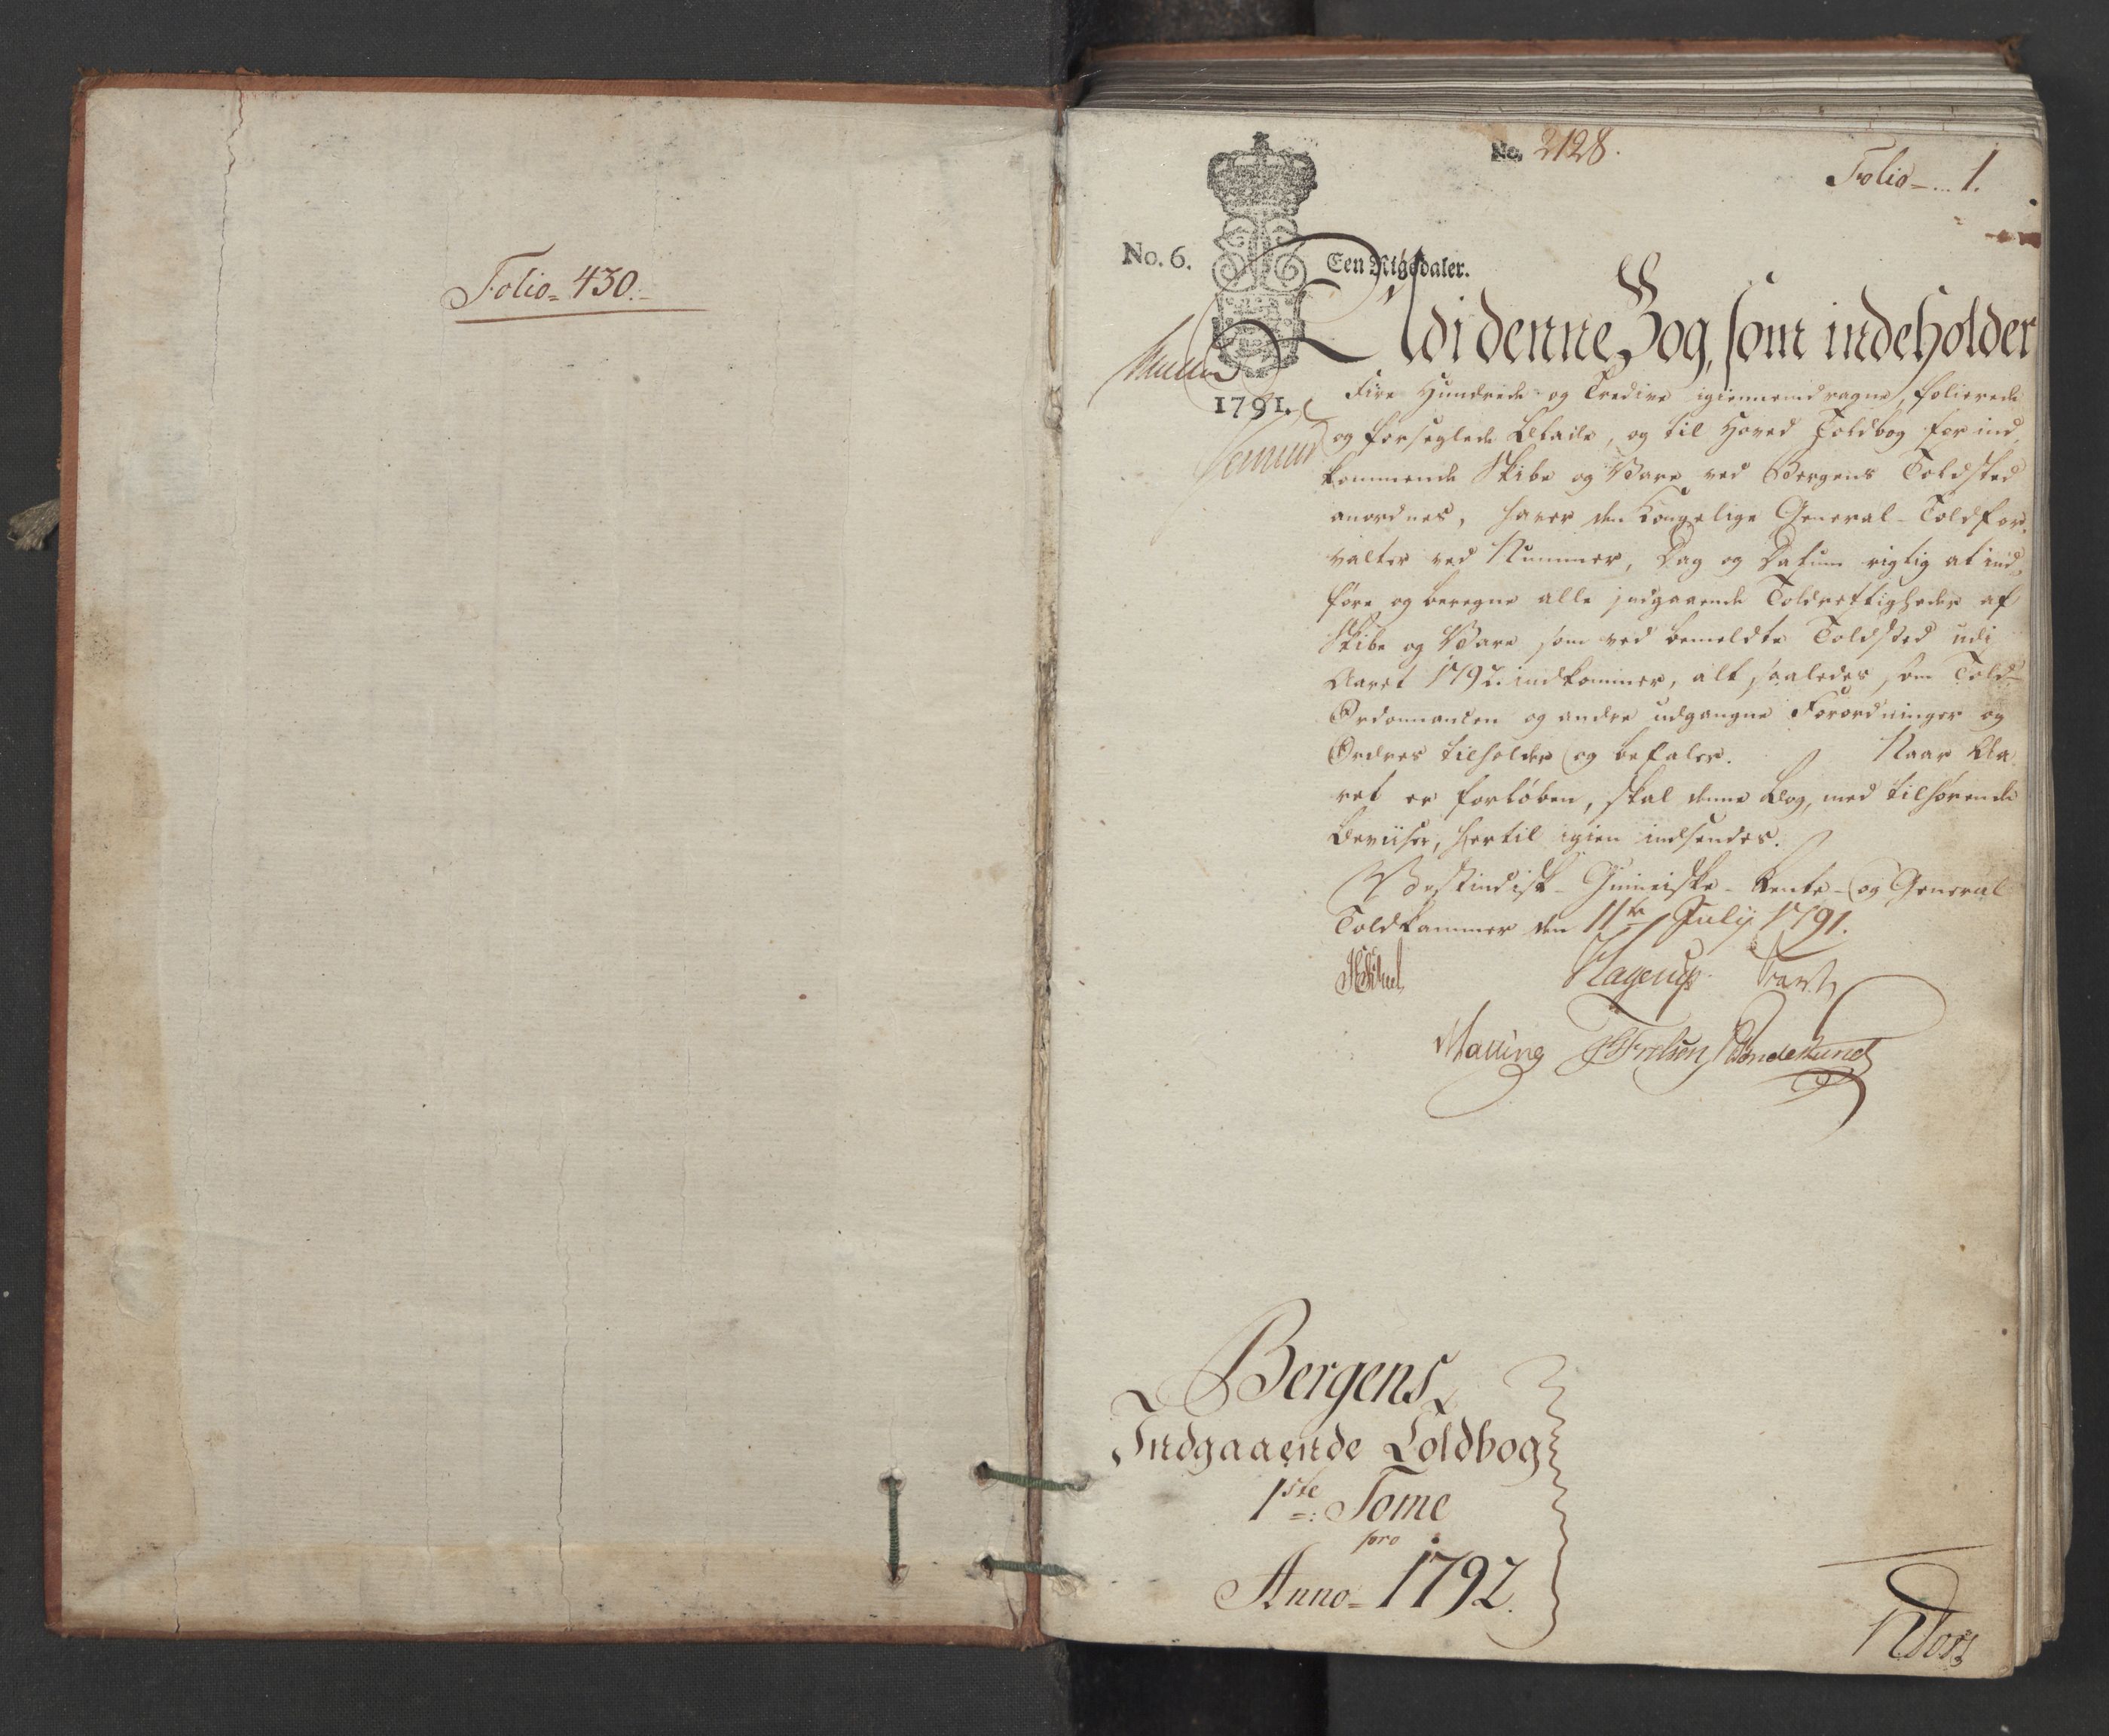 Folio = 430.
No. 2128.
Folio - ... 1.
No. 6.
Een Rigsdaler.
1791.
Udi denne Bog, som indeholder
Fire Hundrede og Tredive igiennemdragne, folierede
og forseglede Blade, og til Hoved Toldbog for ind,
kommende Skibe og Vare ved Bergens Toldsted
anordnes, haver den Kongelige General-Toldfor,
valter ved Nummer, Dag og Datum rigtig at ind,
føre og beregne alle indgaaende Toldrettigheder af
Skibe og Vare som ved bemeldte Toldsted udi
Aaret 1792 indkommer, alt saaledes som Told-
Ordonnancen og andre udgangne Forordninger og
Ordres tilholder og befaler. Naar Aa,
ret er forløben, skal denne Bog, med tilhørende
Beviiser, hertil igien indsendes.
Vestindisk-Guineiske-Rente- og General
Toldkammer den 11te July 1791.
Hagerup.
Malling
Bergens
Indgaaende Toldbog
1ste Tome
pro
Anno = 1792.